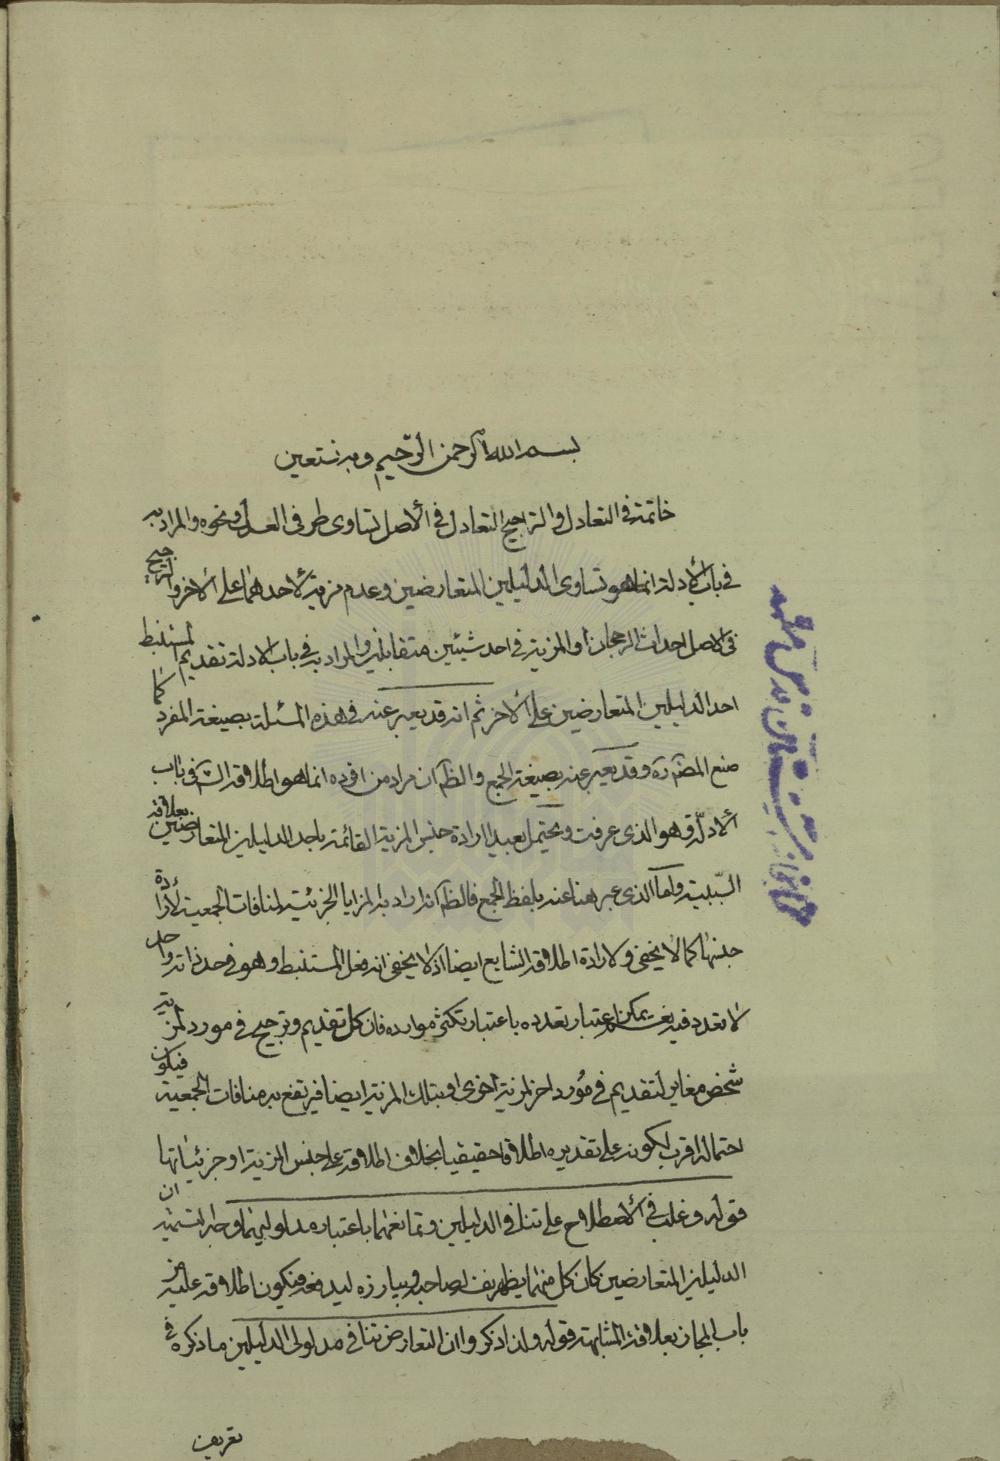 بسم الله الرحمن الرحيم وبه نستعين
خاتمة في التعادل والتراجيح التعادل في الأصل تساوى طرفى العدل ونحوه والمراد به
في باب الأدلة انما هو تساوى الدليلين المتعارضين وعدم مزية لأحدهما على الآخر والترجيح
في الاصل احداث الرجحان او المزية في احد شيئين متقابلين والمراد به في باب الادلة تقديم المستنبط
احد الدليلين المتعارضين على الآخر ثم انه قد يعبر عنه في هذه المسئلة بصيغة المفرد كما
صنع المصنف ره وقد يعبر عنه بصيغة الجمع والظ ان مراد من افرده انما هو اطلاقه في باب
الأدلة وهو الذى عرفت ويحتمل بعيدا ارادة جنس المزية القائمة باحد الدليلين المتعارضين بعلاقة
السببية واما الذى عبر هنا عنه بلفظ الجمع فالظ انه اراد به المزايا الجزئية لمنافات الجمعية لأرادة
جنسها كما لا يخفى ولا رادة اطلاقه الشايع ايضا اذ لا يخفى انه فعل المستنبط وهو في حد ذاته واحد
لا تعدد فيه نعم يمكن اعتبار تعدده باعتبار تكثر موارده فان كل تقديم وترجيح في مورد لمزية
شخص مغاير لتقديم في مورد اخر لمزية اخرى او بتلك المزية ايضا فيرتفع به منافات الجمعية فيكون
احتماله اقرب لكونه على تقديره اطلاقا حقيقيا بخلاف اطلاقه على جنس المزية او جزئياتها
قوله وغلب في الأصطلاح على تنافي الدليلين وتمانعهما باعتبار مدلوليهما وجه التسمية ان
الدليلين المتعارضين كان كل منهما يظهر نفسه لصاحبه ويبارزه ليدفعه فيكون اطلاقه عليه من
باب المجاز بعلاقة المشابهة قوله ولذا ذكروا ان التعارض تنافي مدلولى الدليلين ما ذكره في
تعريف